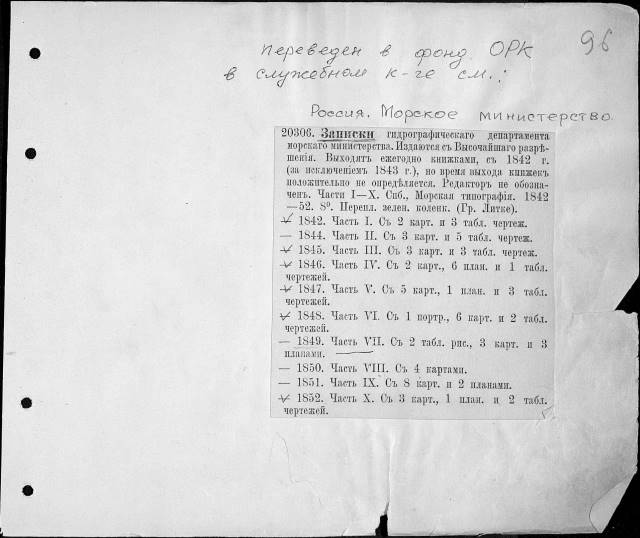 переведен в фонд ОРК
96
в служебном к-ге см.:
Россия. Морское министерство.
20306. Записки гидрографическаго департамента
морскаго министерства. Издаются съ Высочайшаго разрѣ-
шенія. Выходятъ ежегодно книжками, съ 1842 г.
(за исключеніемъ 1843 г.), но время выхода книжекъ
положительно не опредѣляется. Редакторъ не обозна-
ченъ. Части I—X. Спб., Морская типографія. 1842
—52. 8º. Перепл. зелен. коленк. (Гр. Литке).
— 1842. Часть I. Съ 2 карт. и 3 табл. чертеж.
— 1844. Часть II. Съ 3 карт. и 5 табл. чертеж.
— 1845. Часть III. Съ 3 карт. и 3 табл. чертеж.
— 1846. Часть IV. Съ 2 карт., 6 план. и 1 табл.
чертежей.
— 1847. Часть V. Съ 5 карт., 1 план. и 3 табл.
чертежей.
— 1848. Часть VI. Съ 1 портр., 6 карт. и 2 табл.
чертежей.
— 1849. Часть VII. Съ 2 табл. рис., 3 карт. и 3
планами.
— 1850. Часть VIII. Съ 4 картами.
— 1851. Часть IX. Съ 8 карт. и 2 планами.
— 1852. Часть X. Съ 3 карт., 1 план. и 2 табл.
чертежей.